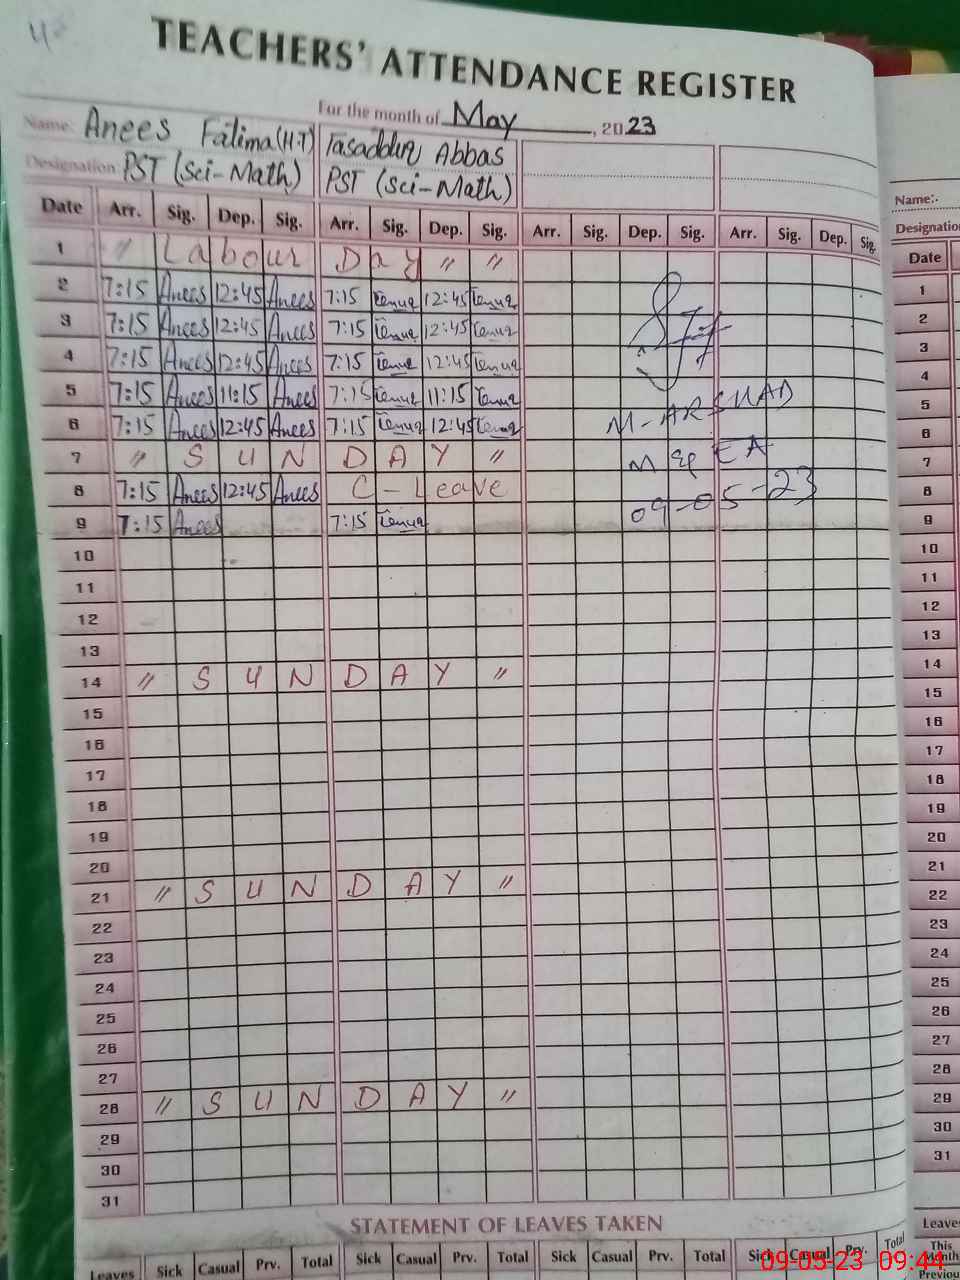 TEACHERS' ATTENDANCE REGISTER
For the month of May, 2023
Name: Anees Fatima (H.T) Tasadduq Abbas
Designation: PST (Sci-Math) PST (Sci-Math)
Date Arr. Sig. Dep. Sig. Arr. Sig. Dep. Sig. Arr. Sig. Dep. Sig. Arr. Sig. Dep. Sig.
1 " Labour Day " "
2 7:15 Anees 12:45 Anees 7:15 12:45
3 7:15 Anees 12:45 Anees 7:15 12:45
4 7:15 Anees 12:45 Anees 7:15 12:45
5 7:15 Anees 11:15 Anees 7:15 11:15
6 7:15 Anees 12:45 Anees 7:15 12:45
M-ARSHAD
7 " S U N D A Y "
M&EA
8 7:15 Anees 12:45 Anees C-Leave
09-05-23
9 7:15 Anees 7:15
10
11
12
13
14 " S U N D A Y "
15
16
17
18
19
20
21 " S U N D A Y "
22
23
24
25
26
27
28 " S U N D A Y "
29
30
31
STATEMENT OF LEAVES TAKEN
Leaves Sick Casual Prv. Total Sick Casual Prv. Total Sick Casual Prv. Total Sick Casual Prv. Total
Name:-
Designation
Date
1
2
3
4
5
6
7
8
9
10
11
12
13
14
15
16
17
18
19
20
21
22
23
24
25
26
27
28
29
30
31
Leaves
This
Month
Previous
09-05-23 09:44